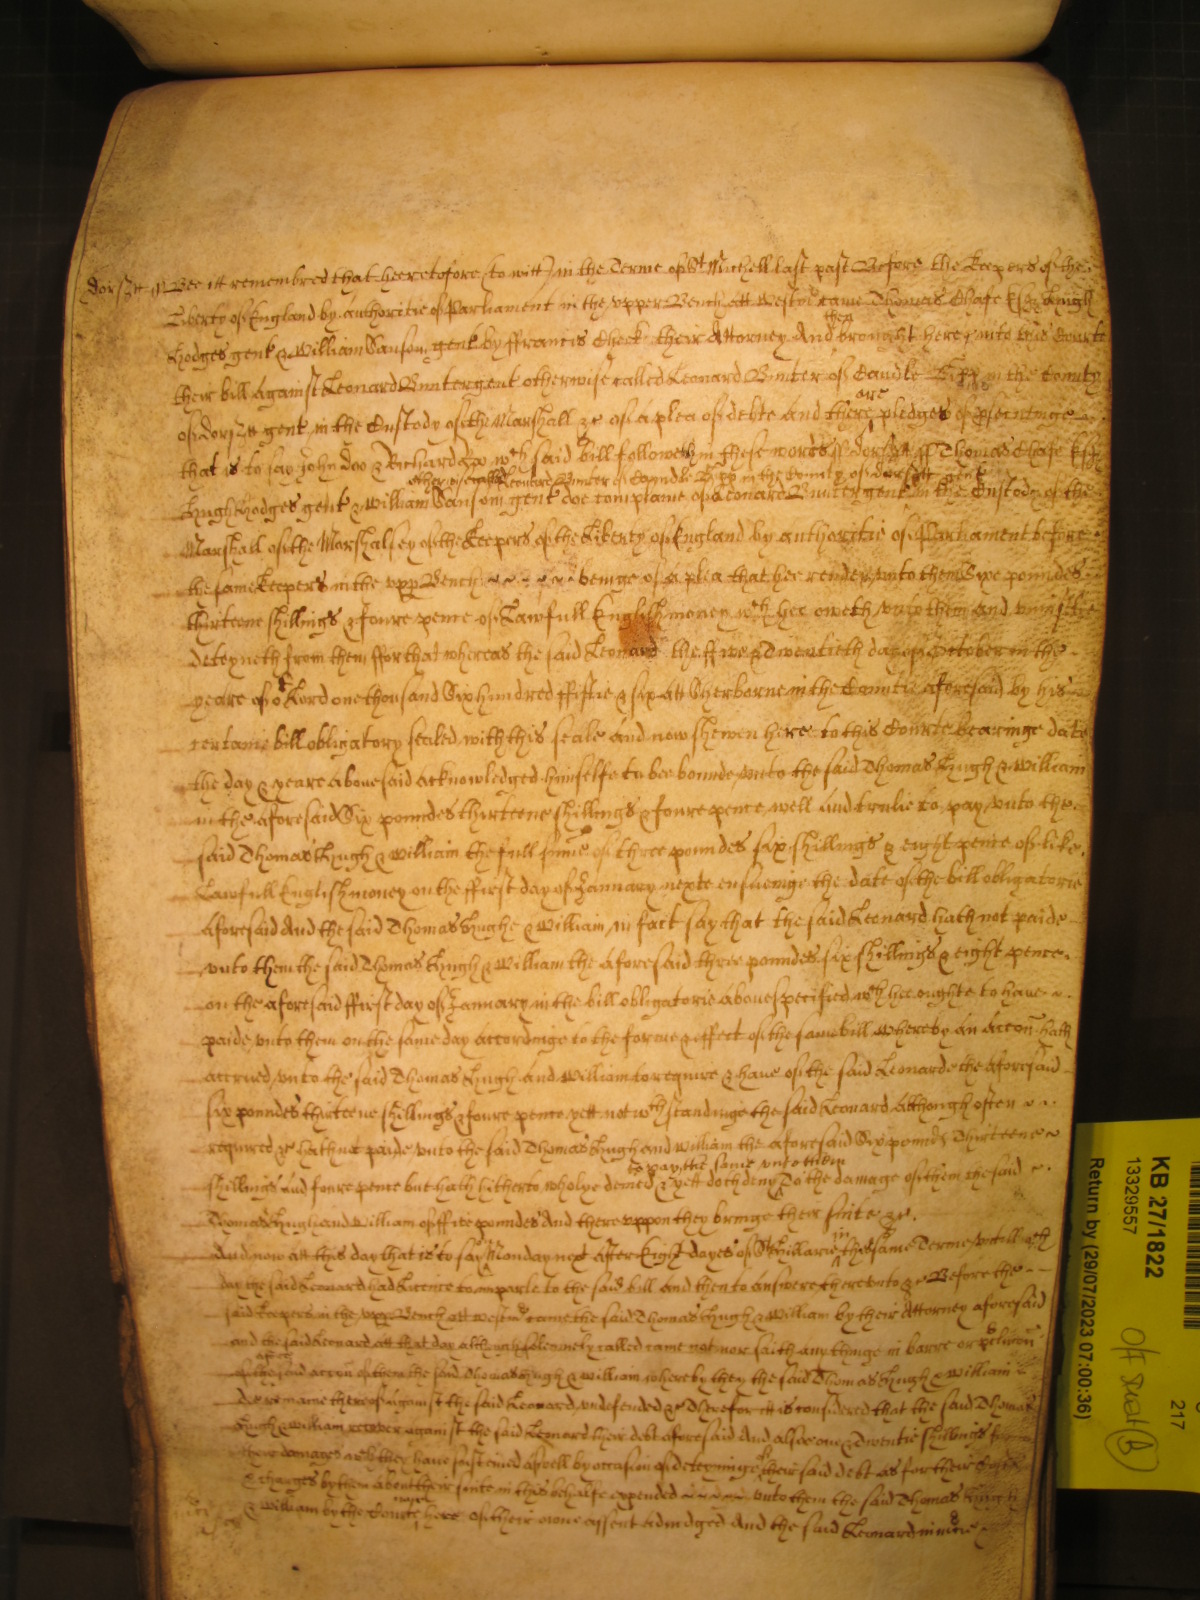 Dorsztt ss Bee itt remembred that heeretofore (to witt) in the Terme of St Michell last past Before the Keepers of the
Liberty of England by authoritie of Parliament in the upper Bench att Westmr came Thomas Chafe Esqr Hugh
Hodges gent & William Sansom gent by ffrancis Cheek their Attorney And then brought here unto this Courte
their bill Against Leonard Bunter gent otherwise called Leonard Bunter of Caundle in the County
of Dorsztt gent in the Custody of the Marshall &c of a plea of debte And there are pledges of psecutinge
that is to say John Doo & Richard Roo wch said bill followeth in these words ss Dorsztt ss Thomas Chafe Esqr
otherwise called Leonard Bunter of Caundle in the County of Dorsett gent
Hugh Hodges gent & William Sansom gent doe complaine of Leonard Bunter gent in the Custody of the
Marshall of the Marshalsey of the Keepers of the Liberty of England by authoritie of Parliament before
the same Keepers in the upp Bench beinge of a plea that hee render unto them Sixe poundes
thirteene shillings & foure pence of Lawfull English money wch hee oweth unto them and uniustlie
deteyneth from them ffor that whereas the said Leonard the ffive & Twentieth day of October in the
yeare of or Lord one thousand Six hundred ffiftie & six att Sherborne in the Countie aforesaid by his
certaine bill obligatory sealed with this seale and now shewen here to this Courte bearinge date
the day & yeare abovesaid acknowledged himselfe to bee bounde unto the said Thomas Hugh & William
in the aforesaid Six poundes thirteene shillings & foure pence well And trulie to pay unto the
said Thomas Hugh & William the full summe of three poundes six shillings & eight pence of like
Lawfull English money on the ffirst day of January nexte ensueinge the date of the bill obligatorie
aforesaid And the said Thomas Hughe & William in fact say that the said Leonard hath not paide
unto them the said Thomas Hugh & William the aforesaid three poundes six shillings & eight pence
on the aforesaid ffirst day of January in the bill obligatorie above specified wch hee oughte to have
paide unto them on the same day accordinge to the forme & effect of the same bill Whereby An accon hath
accrued unto the said Thomas Hugh And William to require & have of the said Leonard the aforesaid
six poundes thirteene shillings & foure pence yett notwthstandinge the said Leonard Although often
required &c hath not paide unto the said Thomas Hugh and William the aforesaid Six pounds Thirteene
shillings and foure pence but hath hitherto wholye denied to pay the same unto them & yett doth deny To the damage of them the said
Thomas Hugh and William of ffive poundes And thereuppon they bringe their suite &c.
And now att this day that is to say Monday next After Eight dayes of St Hillarie in this same Terme untill wch
day the said Leonard had Licence to imparle to the said bill And then to answere thereunto &c Before the
said Keepers in the upp Bench att Westmr came the said Thomas Hugh & William by their Attorney aforesaid
and the said Leonard att that day although solemnely called came not nor saith any thinge in barre or
of the said accon of them the said Thomas Hugh & William whereby they the said Thomas Hugh & William
doe remaine thereof against the said Leonard undefended &c Therefore itt is considered that the said Thomas
Hugh & William recover against the said Leonard their debt aforesaid And alsoe one & Twentie shillings
their damages wch they have susteined aswell by occasion of deteininge of their said debt as for their
& charges by them about their suite in this behalfe expended unto them the said Thomas Hugh
& William by the Courte here of their owne assent adiudged And the said Leonard in mcie
KB 27/1822
217
13329557
Return by (29/07/2023 07:00:36)